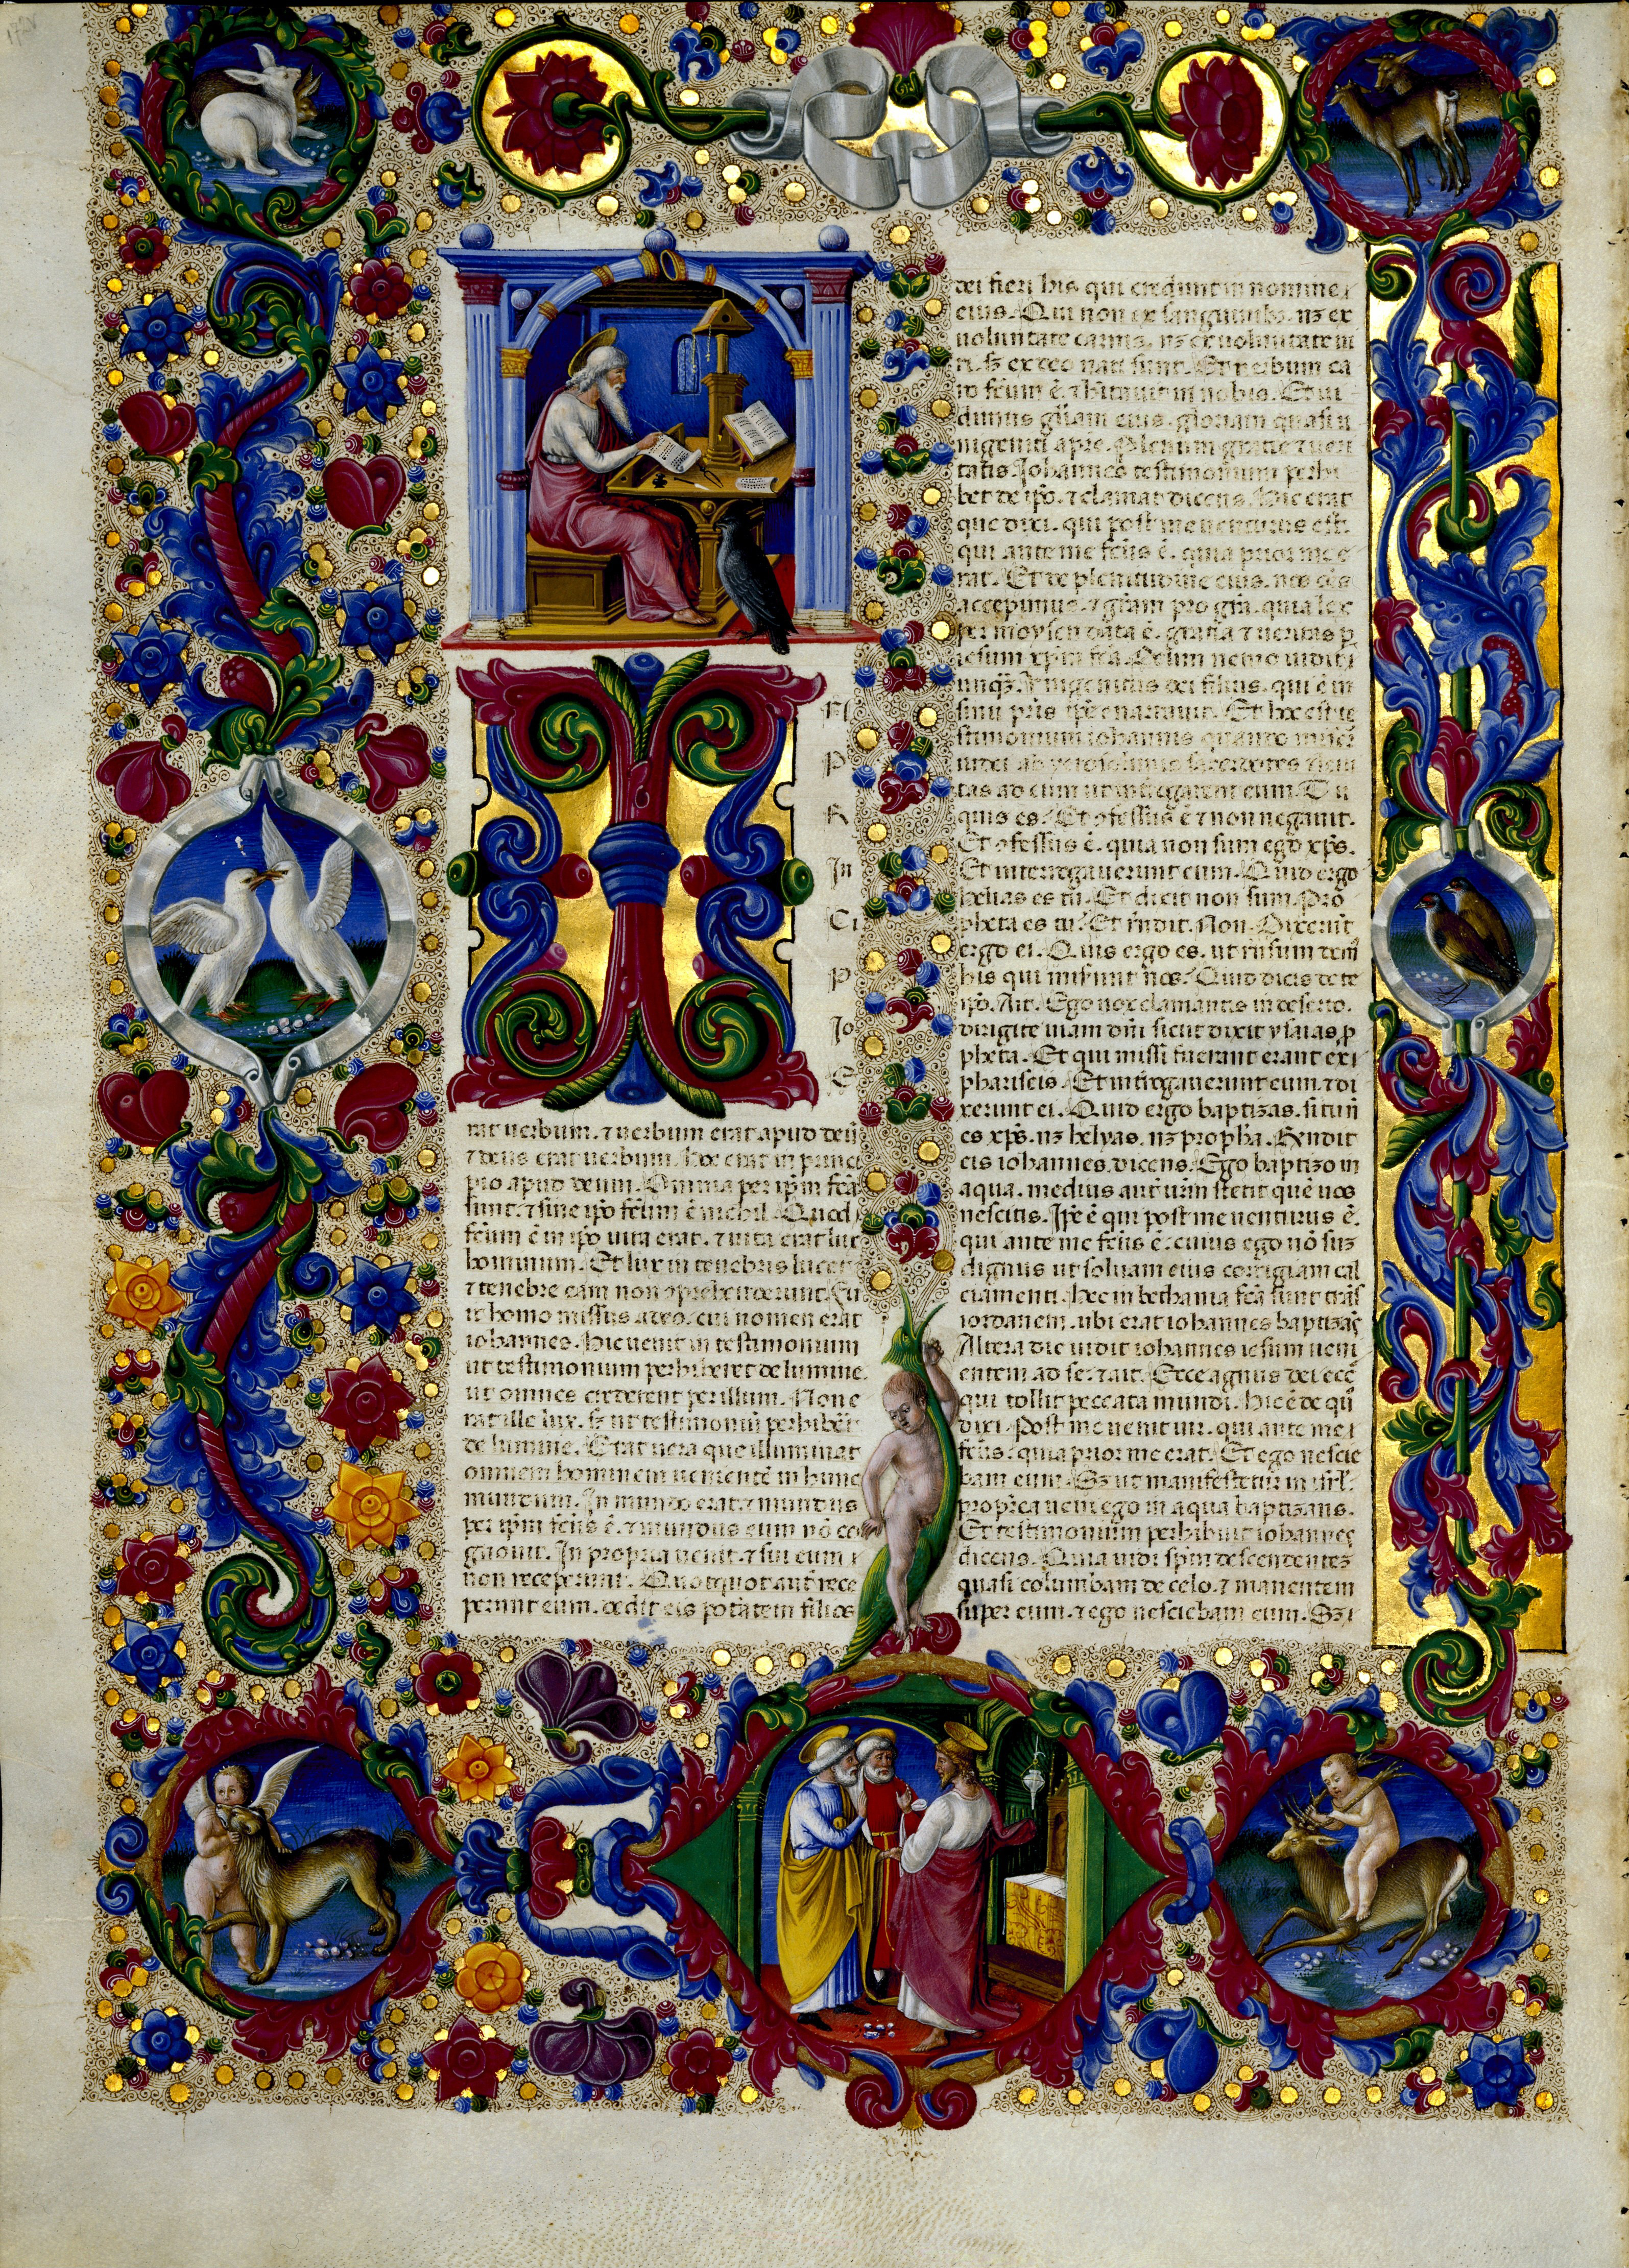 I
P
R
In
Ci
P
Jo
E
rat uerbum. ⁊ uerbum erat apud deū
⁊ deus erat uerbum. Hoc erat in princi
pio apud deum. Omnia per ip̄m fc̄a
sunt. ⁊ sine ip̄o fc̄um ē nichil. Quod
fc̄um ē in ip̄o uita erat. ⁊ uita erat lux
hominum. Et lux in tenebris lucet
⁊ tenebre eam non ↄprehenderunt. Fu
it homo missus a deo. cui nomen erat
iohannes. Hic uenit in testimonium
ut testimonium perhiberet de lumine.
ut omnes crederent per illum. Non e
rat ille lux. sʒ ut testimoniū perhibēt
de lumine. Erat uera que illuminat
omnem hominem uenientē in hunc
mundum. In mundo erat ⁊ mundus
per ip̄m fc̄us ē. ⁊ mundus eum nō co
gnouit. In propria uenit. ⁊ sui eum
non receperunt. Quotquot aūt rece
perunt eum. dedit eis potātem filios
dei fieri his qui credunt in nomine
eius. Qui non ex sanguinibꝰ. nꝫ ex
uoluntate carnis. nꝫ ex uoluntate ui
ri. sʒ ex deo nati sunt. Et uerbum ca
ro fc̄um ē. ⁊ hītauit in nobis. Et ui
dimus glīam eius. gloriam quasi u
nigeniti a pr̄e. Plenum gratie ⁊ ueri
tatis. Johannes testimonium perhi
bet de ip̄o. ⁊ clamat dicens. Hic erat
que dixi. qui post me uenturus est.
qui ante me fc̄us ē. quia prior me e
rat. Et de plenitudine eius. nos oēs
accepimus. ⁊ grām pro grā. quia lex
per moysen data ē. gratia ⁊ ueritas p̱
iesum xp̄m fc̄a. Deum nemo uidit
unqꝫ. Vnigenitus dei filius. qui ē in
sinu pr̄is ip̄e enarrauit. Et hoc est te
stimonium iohannis quando miser̄t
iudei ab yerosolimis sacerdotes ⁊ leui
tas ad eum ut int̄rogarent eum. Tu
quis es? Et ↄfessus ē ⁊ non negauit.
Et ↄfessus ē. quia non sum ego xp̄s.
Et interrogauerunt eum. Quid ergo
helias es tu? Et dicit non sum. Pro
pheta es tu? Et rn̄dit. Non. Dixerūt
ergo ei. Quis ergo es. ut rn̄sum dem̄
his qui miserunt nos. Quid dicis de te
ip̄o. Ait. Ego uox clamantis in deserto.
dirigite uiam dn̄i sicut dixit ysaias p̱
pheta. Et qui missi fuerant erant ex
phariseis. Et int̄rogauerunt eum. ⁊ di
xerunt ei. Quid ergo baptizas. si tu n̄
es xp̄s. nꝫ helyas. nꝫ prophā. Rendit
eis iohannes. dicens. Ego baptizo in
aqua. medius aūt ur̄m stetit quē uos
nescitis. Ip̄e ē qui post me uenturus ē.
qui ante me fc̄us ē. cuius ego nō suꝫ
dignus ut soluam eius corrigiam cal
ciamenti. Hec in bethania fc̄a sunt trās
iordanem. ubi erat iohannes baptizās
Altera die uidit iohannes iesum ueni
entem ad se. ⁊ ait. Ecce agnus dei eccē
qui tollit peccata mundi. hic ē de qō
dixi. Post me uenit uir. qui ante me
fc̄us. quia prior me erat. Et ego nescie
bam eum. Sꝫ ut manifestetur in isrl̄.
propt̄ea ueni ego in aqua baptizans.
Et testimonium perhibuit iohannes
dicens. Quia uidi sp̄m descendentēꝫ
quasi columbam de celo. ⁊ manentem
super eum. ⁊ ego nesciebam eum. Sꝫ